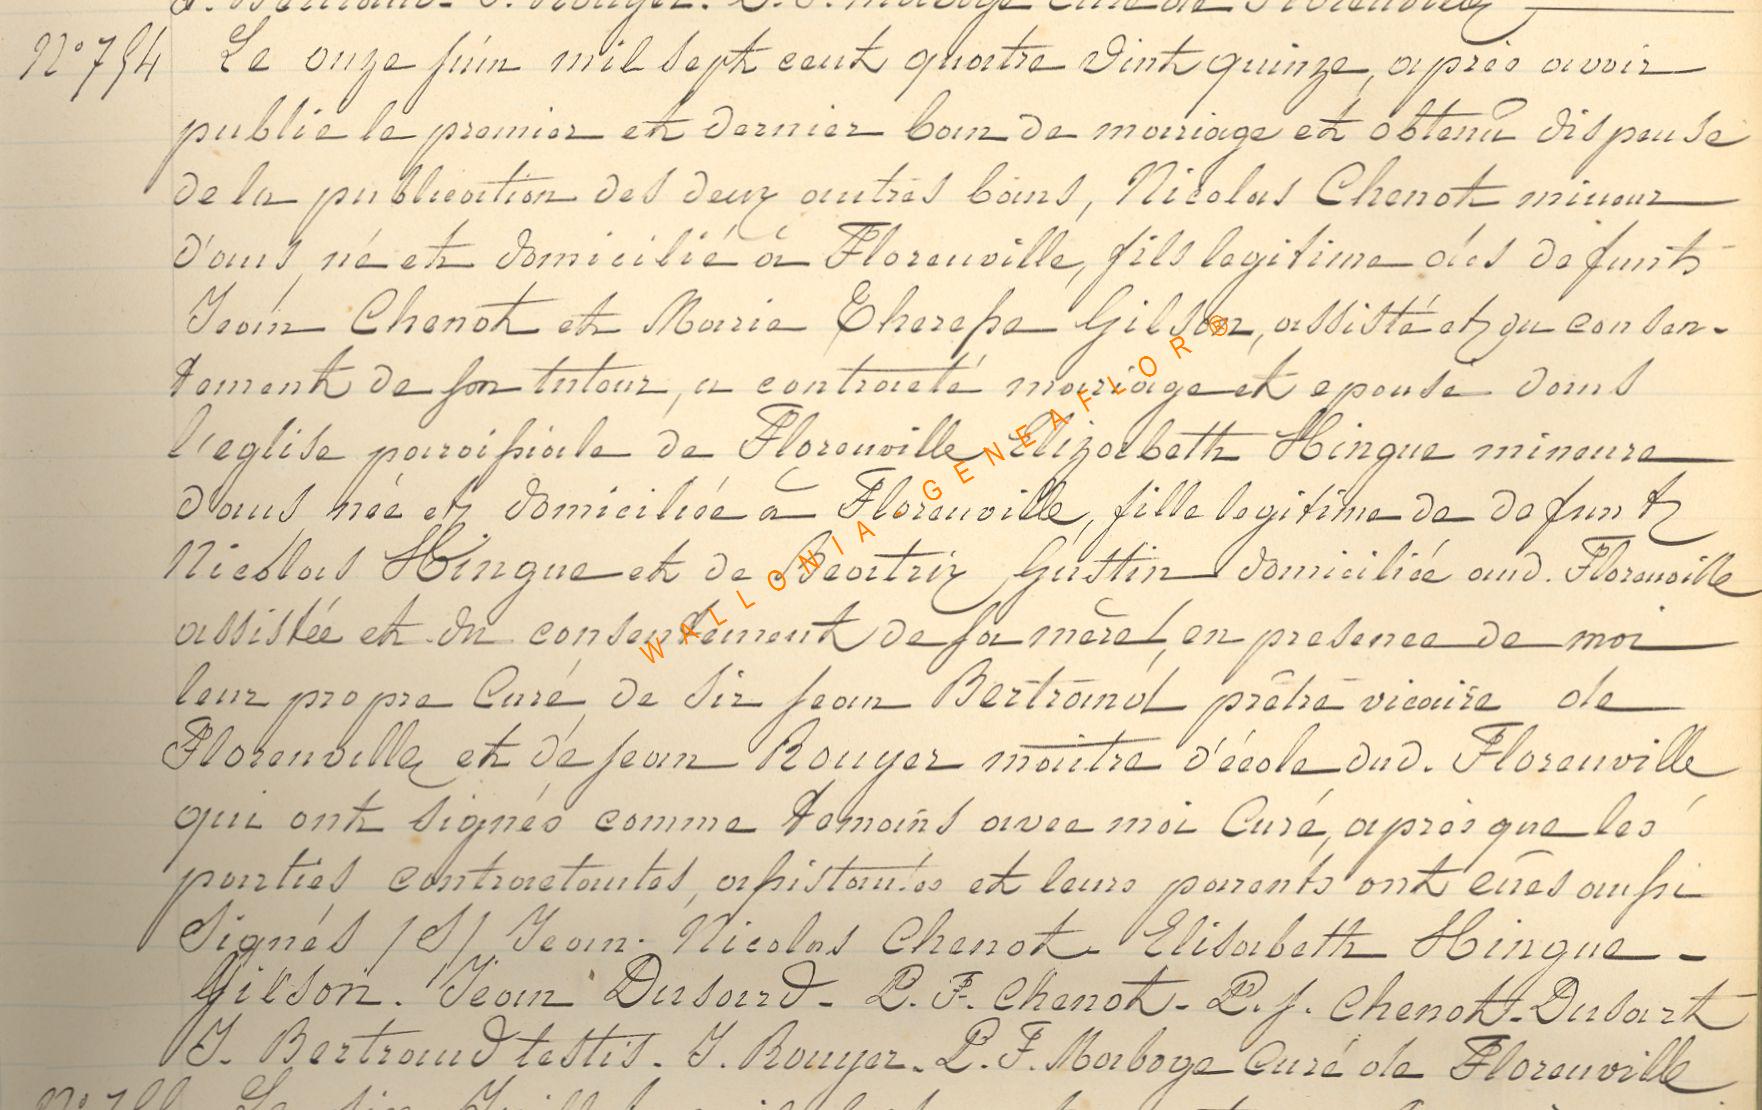 J. Bertrand. J. Rouyer. L. F. Maboge Curé de Florenville
N° 754 Le onze juin mil sept cent quatre vint quinze, après avoir
publie le premier et dernier ban de mariage et obtenû dispense
de la publication des deux autres bans, Nicolas Chenot mineur
d'ans, né et domicilié à Florenville, fils legitime dés defunts
Jean Chenot et Marie Therese Gilson, assisté et du consen-
tement de son tuteur, a contracté mariage et epousé dans
l'eglise paroissiale de Florenville Elizabeth Hingue mineure
d'ans, née et domiciliée à Florenville, fille legitime de defunt
Nicolas Hingue et de Beatrix Gustin domiciliée aud. Florenville
assistée et du consentement de sa mère, en presence de moi
leur propre Curé, de Sir Jean Bertrand prêtre vicaire de
Florenville et dé Jean Rouyer maitre d'école dud. Florenville
qui ont signés comme temoins avec moi Curé, après que les
parties contractantes, assistantes et leurs parents ont eûes aussi
Signés /S/ Jean. Nicolas Chenot. Elisabeth Hingue -
Gilson. Jean Dusard - L. F. Chenot - L. J. Chenot - Dusart
J. Bertrand testis - J. Rouyer - L. F. Maboge Curé de Florenville
WALLONIA - GENEAFLOR ®